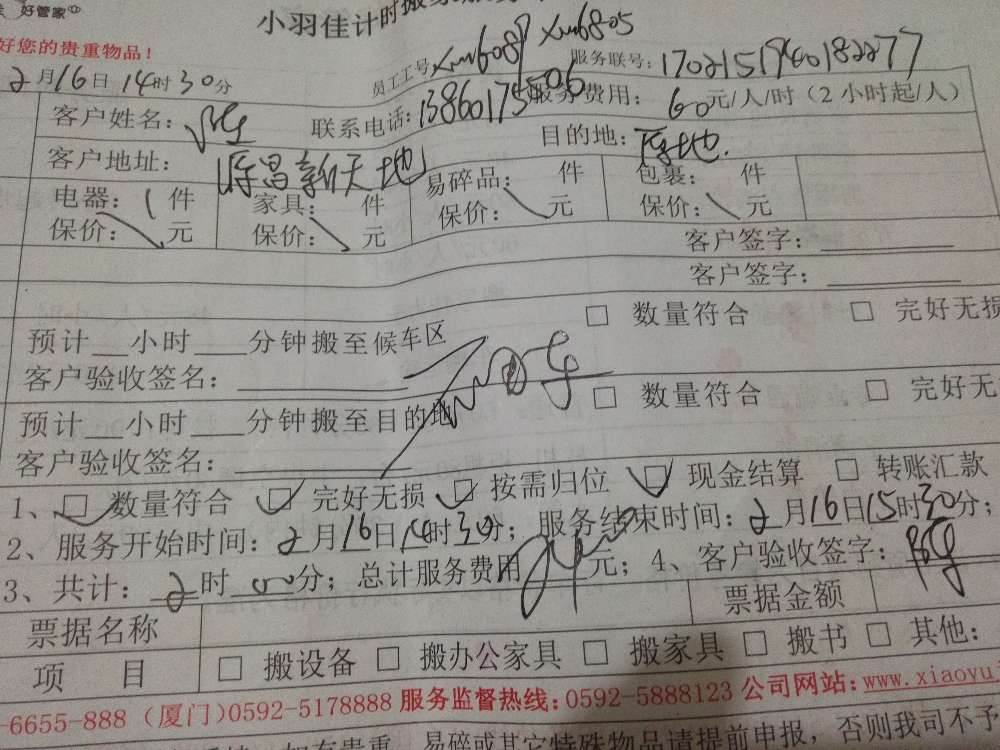 好管家
小羽佳计时搬
好您的贵重物品!
员工工号 xm6089 xm6805
2月16日14时30分
服务联号:1702151940182277
客户姓名: 联系电话:13860175506 服务费用:60元/人/时(2小时起/人)
客户地址: 新天地 目的地:
电器:1件 家具: 件 易碎品: 件 包裹: 件
保价: 元 保价: 元 保价: 元 保价: 元
客户签字:
客户签字:
预计 小时 分钟搬至候车区 □ 数量符合 □ 完好无损
客户验收签名:
预计 小时 分钟搬至目的地 □ 数量符合 □ 完好无
客户验收签名:
1、☑数量符合 ☑完好无损 ☑按需归位 ☑现金结算 □ 转账汇款
2、服务开始时间:2月16日14时30分;服务结束时间:2月16日15时30分;
3、共计:2时00分;总计服务费用 元;4、客户验收签字:
票据名称 票据金额
项 目 □ 搬设备 □ 搬办公家具 □ 搬家具 □ 搬书 □ 其他:
-6655-888(厦门)0592-5178888 服务监督热线:0592-5888123 公司网站:www.xiaoyu
如有贵重、易碎或其它特殊物品请提前申报,否则我司不予